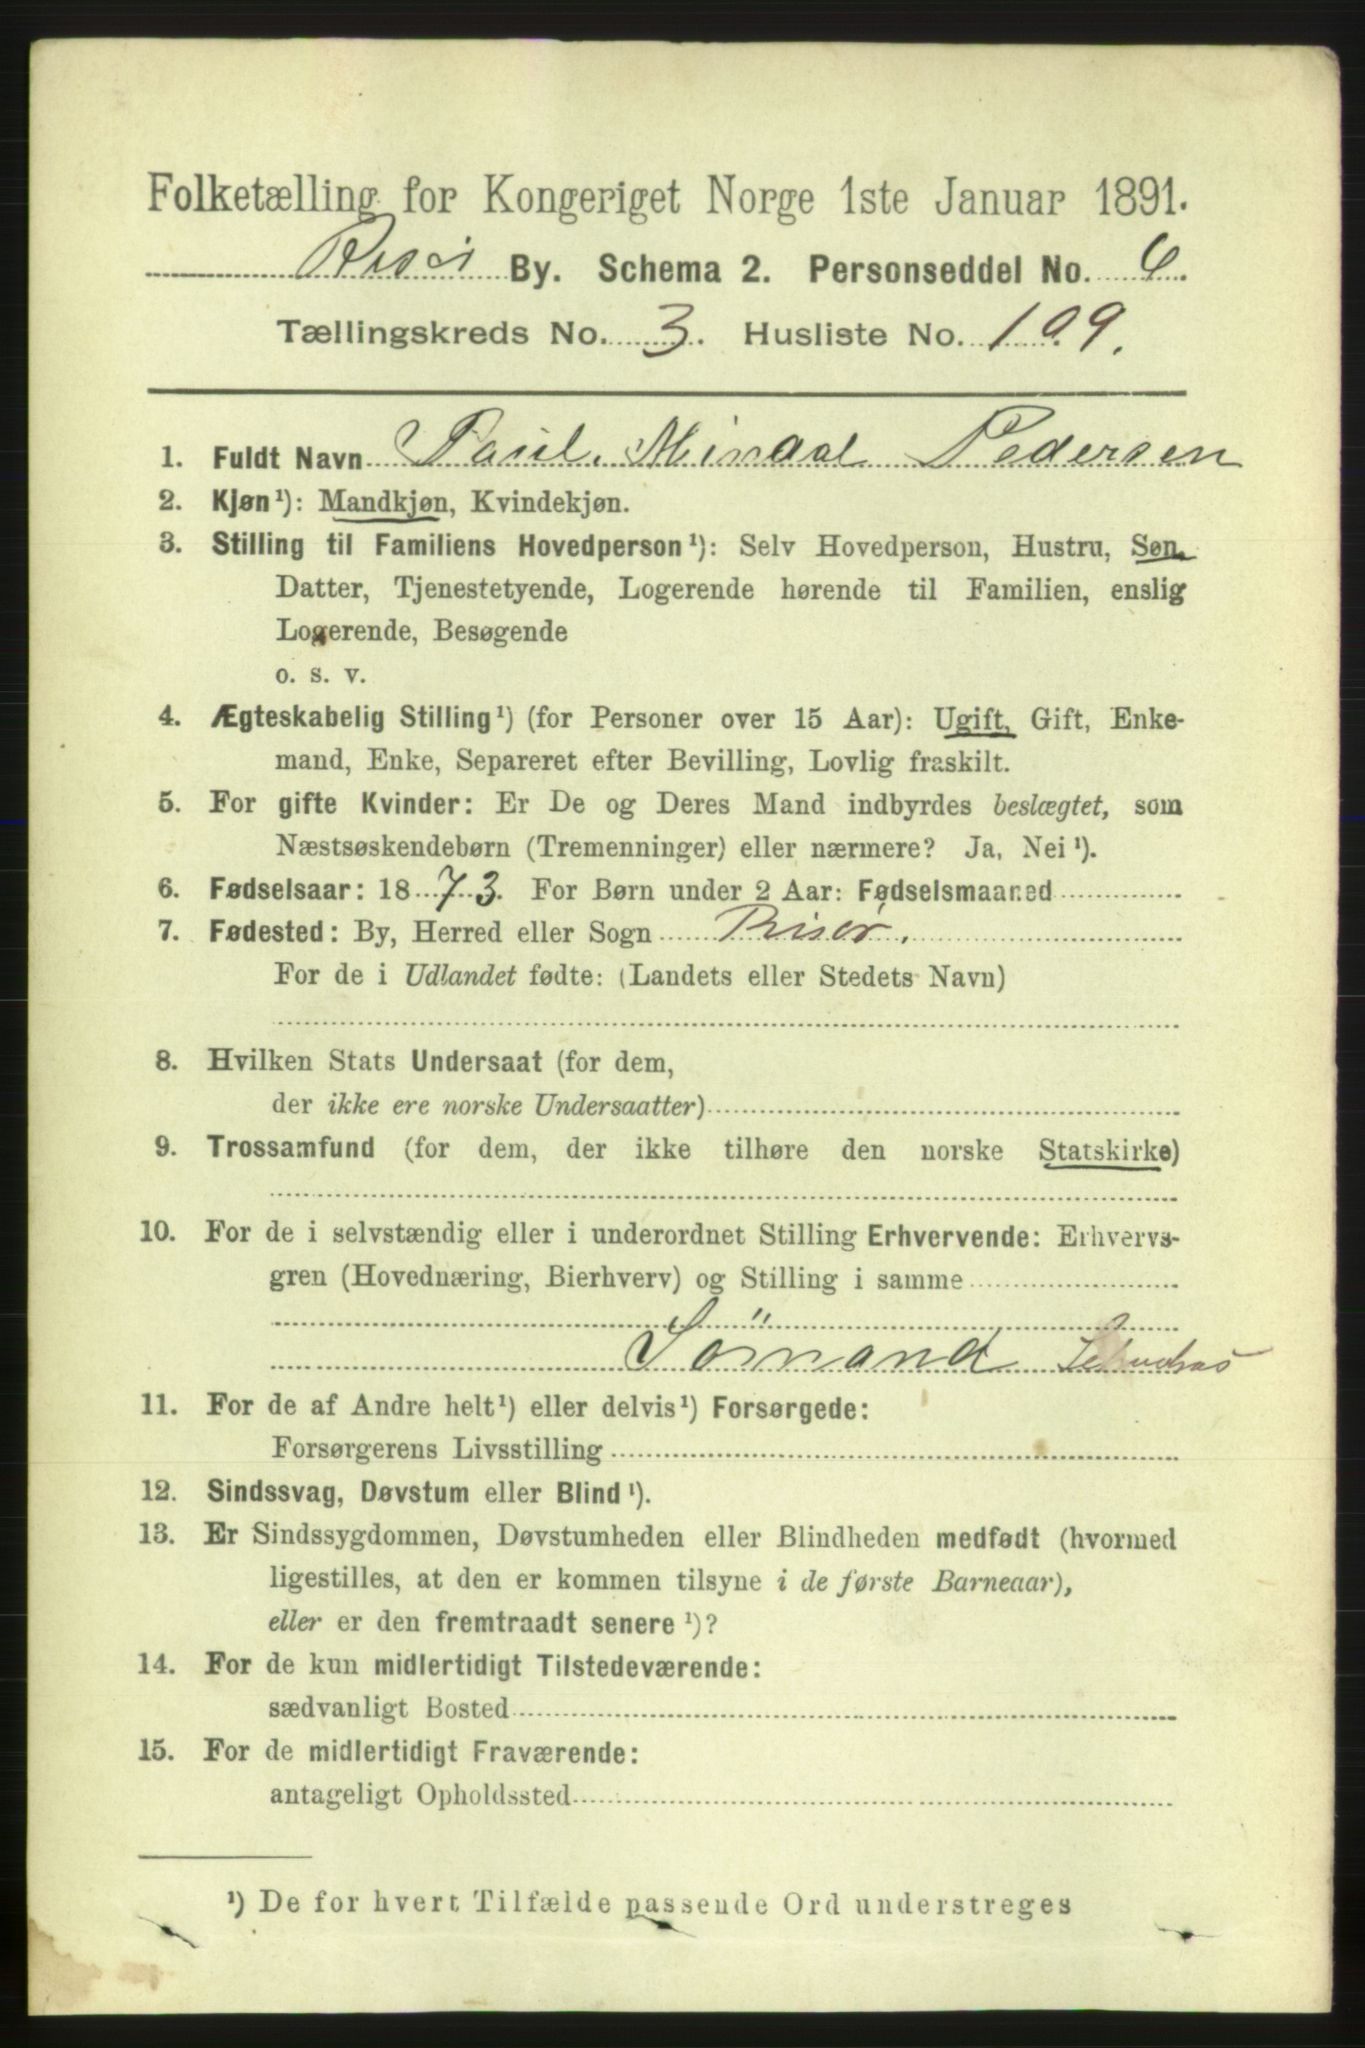 Folketælling for Kongeriget Norge 1ste Januar 1891.
By. Schema 2. Personseddel No. 6.
Tællingskreds No. 3. Husliste No. 109.
1. Fuldt Navn Paul Pedersen
2. Kjøn¹): Mandkjøn, Kvindekjøn.
3. Stilling til Familiens Hovedperson¹): Selv Hovedperson, Hustru, Søn,
Datter, Tjenestetyende, Logerende hørende til Familien, enslig
Logerende, Besøgende
o. s. v.
4. Ægteskabelig Stilling¹) (for Personer over 15 Aar): Ugift, Gift, Enke-
mand, Enke, Separeret efter Bevilling, Lovlig fraskilt.
5. For gifte Kvinder: Er De og Deres Mand indbyrdes beslægtet, som
Næstsøskendebørn (Tremenninger) eller nærmere? Ja, Nei¹).
6. Fødselsaar: 1873. For Børn under 2 Aar: Fødselsmaaned
7. Fødested: By, Herred eller Sogn Risør.
For de i Udlandet fødte: (Landets eller Stedets Navn)
8. Hvilken Stats Undersaat (for dem,
der ikke ere norske Undersaatter)
9. Trossamfund (for dem, der ikke tilhøre den norske Statskirke)
10. For de i selvstændig eller i underordnet Stilling Erhvervende: Erhvervs-
gren (Hovednæring, Bierhverv) og Stilling i samme
Sömand
11. For de af Andre helt¹) eller delvis¹) Forsørgede:
Forsørgerens Livsstilling
12. Sindssvag, Døvstum eller Blind¹).
13. Er Sindssygdommen, Døvstumheden eller Blindheden medfødt (hvormed
ligestilles, at den er kommen tilsyne i de første Barneaar),
eller er den fremtraadt senere¹)?
14. For de kun midlertidigt Tilstedeværende:
sædvanligt Bosted
15. For de midlertidigt Fraværende:
antageligt Opholdssted
¹) De for hvert Tilfælde passende Ord understreges